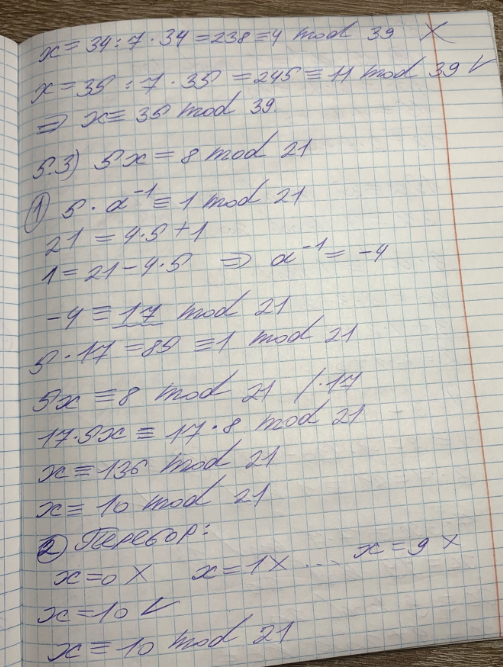 x = 34 : 7 · 34 = 238 ≡ 4 mod 39 ×
x = 35 : 7 · 35 = 245 ≡ 11 mod 39 ✓
⇒ x ≡ 35 mod 39
5.3) 5x = 8 mod 21
① 5 · a⁻¹ ≡ 1 mod 21
21 = 4·5 + 1
1 = 21 - 4·5 ⇒ a⁻¹ = -4
-4 ≡ 17 mod 21
5 · 17 = 85 ≡ 1 mod 21
5x ≡ 8 mod 21 /·17
17·5x ≡ 17·8 mod 21
x ≡ 136 mod 21
x ≡ 10 mod 21
② Перебор:
x = 0 × x = 1 × ... x = 9 ×
x = 10 ✓
x ≡ 10 mod 21